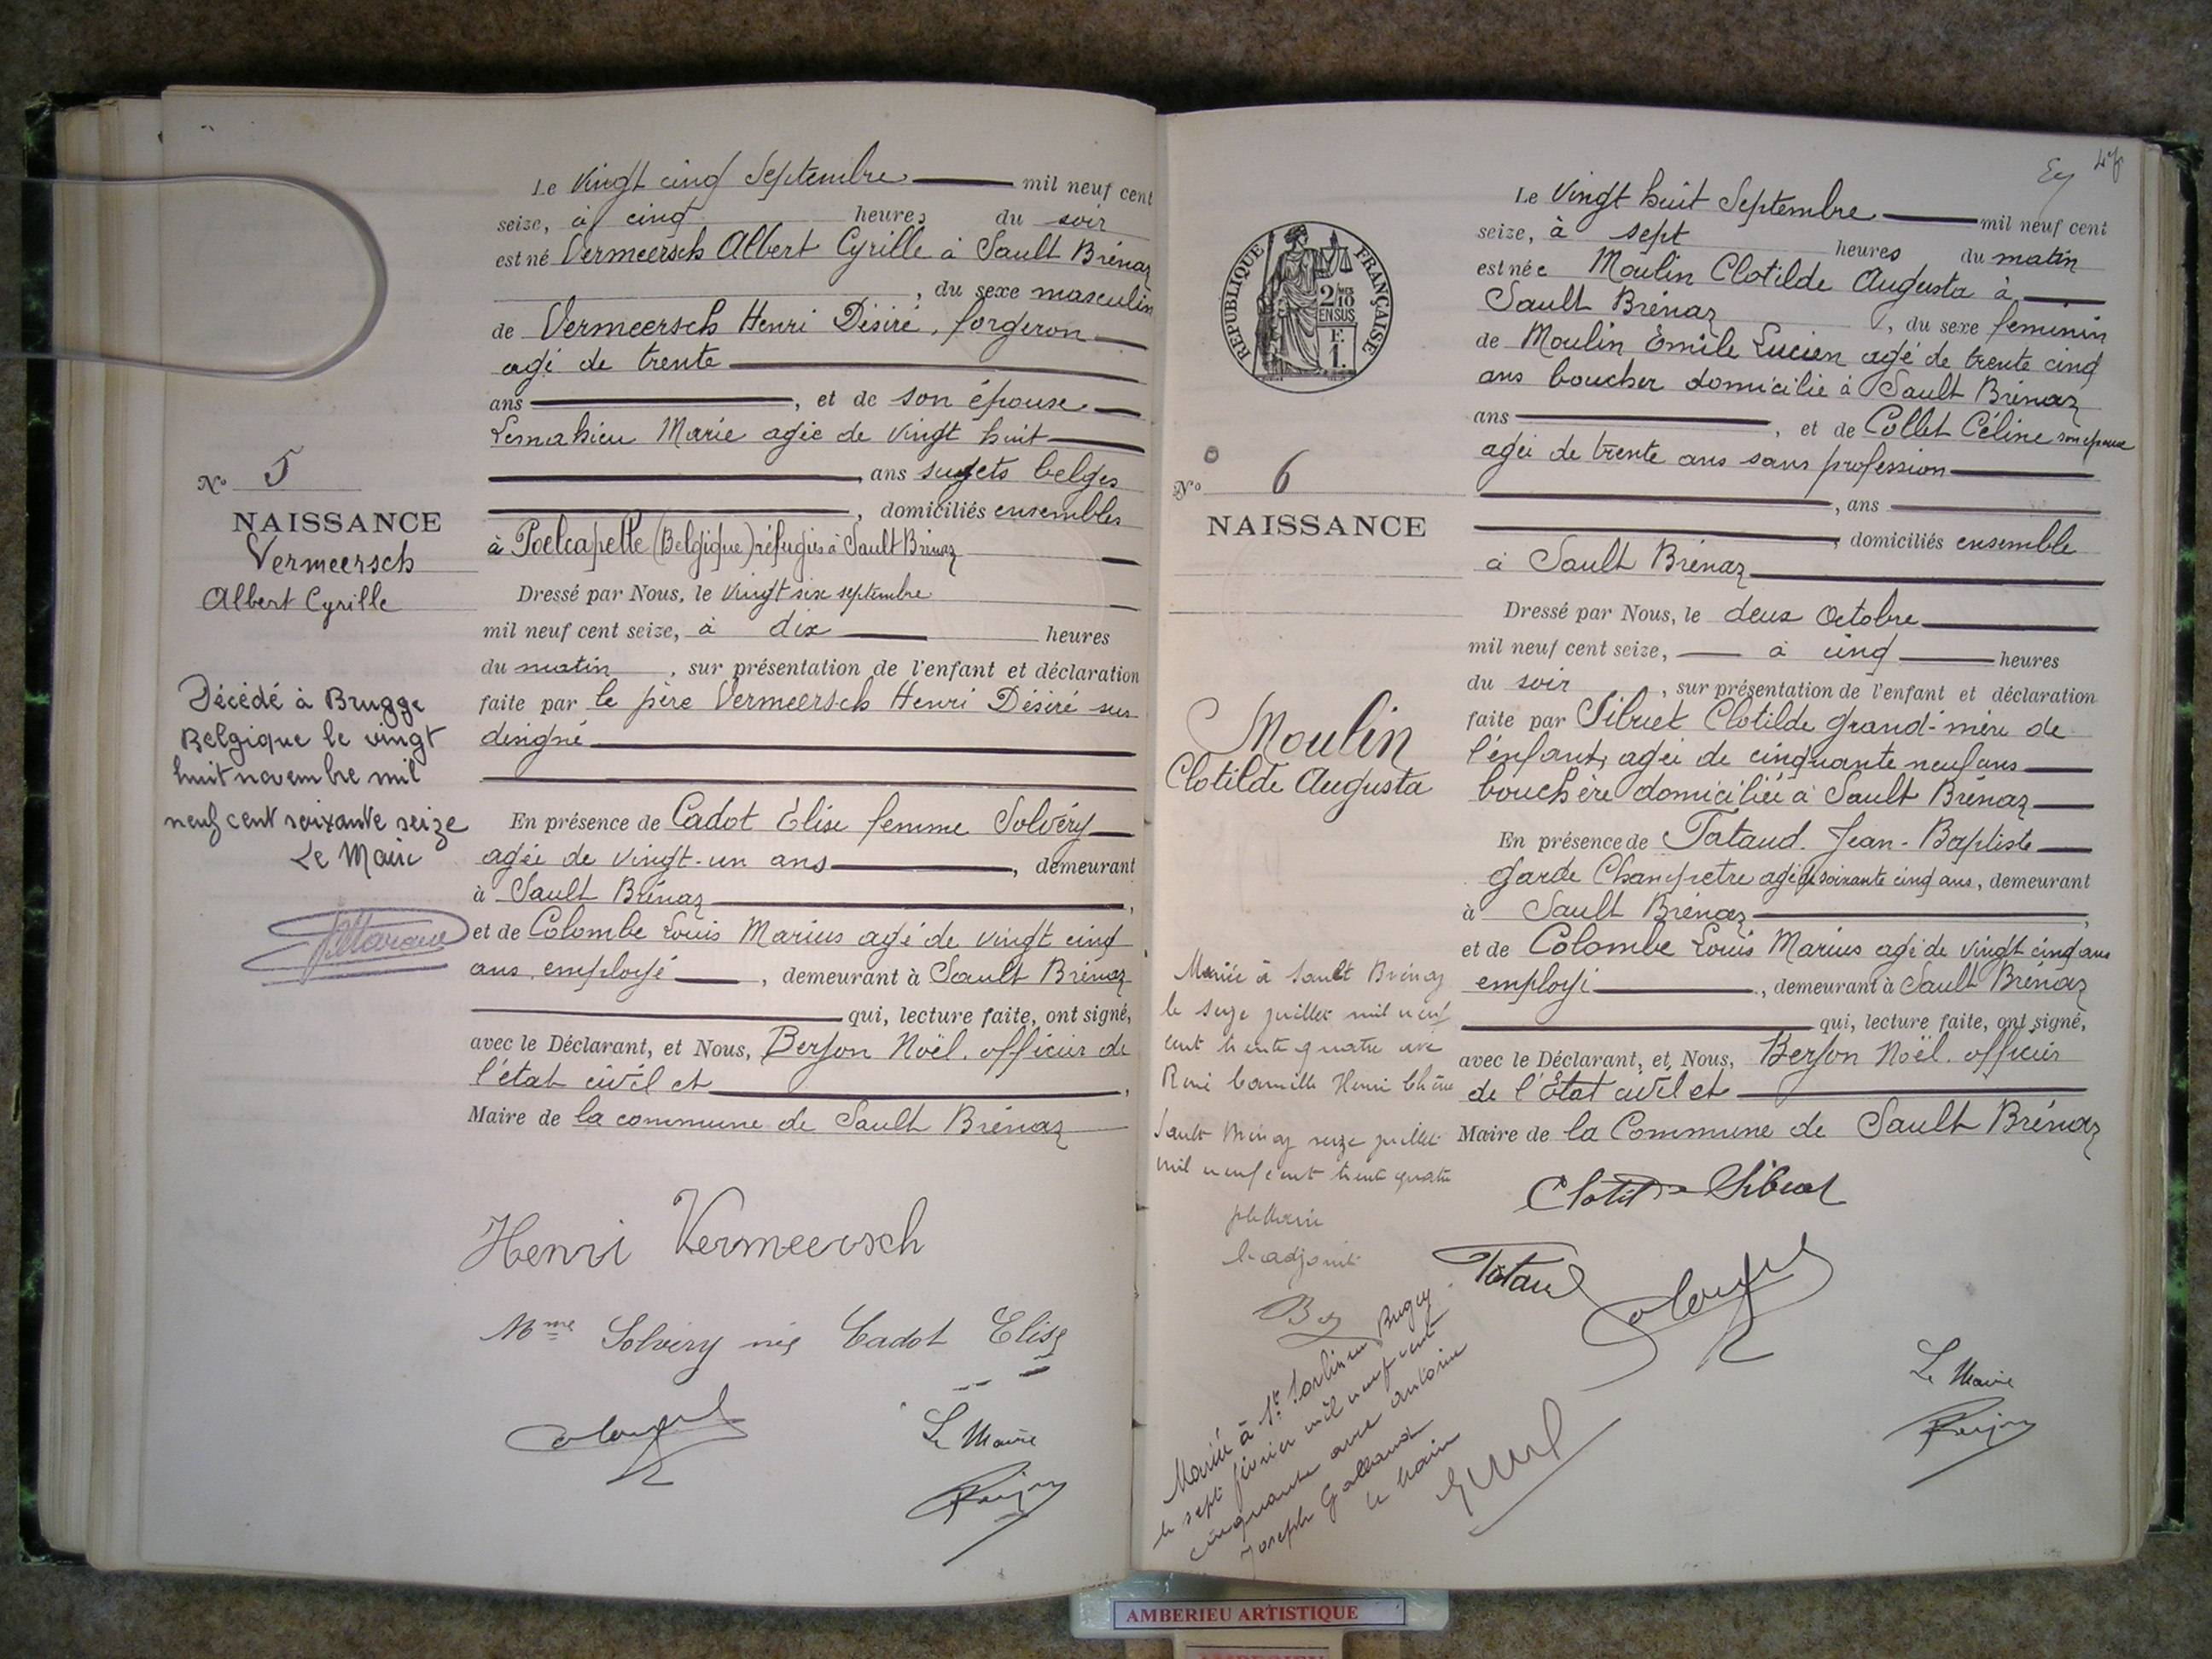 Le vingt cinq Septembre mil neuf cent
seize, à cinq heures du soir
est né Vermeersch Albert Cyrille à Sault Brénaz
, du sexe masculin
de Vermeersch Henri Désiré, forgeron
agé de trente
ans , et de son épouse
Lemahieu Marie agée de vingt huit
ans sugets belges
, domiciliés ensembles
à Poelcapelle (Belgique) réfugiés à Sault Brénaz
Dressé par Nous, le vingt six septembre
mil neuf cent seize, à dix heures
du matin , sur présentation de l'enfant et déclaration
faite par le père Vermeersch Henri Désiré sus
désigné
En présence de Cadot Elise femme Solvéry
agée de vingt-un ans , demeurant
à Sault Brénaz ,
et de Colombe Louis Marius agé de vingt cinq
ans, employé , demeurant à Sault Brénaz
qui, lecture faite, ont signé,
avec le Déclarant, et Nous, Berjon Noël, officier de
l'état civil et ,
Maire de la commune de Sault Brénaz
Henri Vermeersch
Mme Solvéry née Cadot Elise
Le Maire
N° 5
NAISSANCE
Vermeersch
Albert Cyrille
Décédé à Brugge
Belgique le vingt
huit novembre mil
neuf cent soixante seize
Le Maire
47
REPUBLIQUE FRANÇAISE
2/10
EN SUS
F.
1.
N° 6
NAISSANCE
Moulin
Clotilde Augusta
Mariée à Sault Brénaz
le seize juillet mil neuf
cent trente quatre avec
René Camille Henri Chêne
Sault Brénaz seize juillet
mil neuf cent trente quatre
L'adjoint
Mariée à St Sorlin en Bugey
le sept février mil neuf cent
cinquante avec Antoine
Joseph Galland
Le Maire
Le Vingt huit Septembre mil neuf cent
seize, à sept heures du matin
est née Moulin Clotilde Augusta à
Sault Brénaz , du sexe feminin
de Moulin Emile Lucien agé de trente cinq
ans boucher domicilié à Sault Brénaz
ans , et de Collet Céline son épouse
agée de trente ans sans profession
, ans
, domiciliés ensemble
à Sault Brénaz
Dressé par Nous, le deux Octobre
mil neuf cent seize, à cinq heures
du soir , sur présentation de l'enfant et déclaration
faite par Sibuet Clotilde grand-mère de
l'enfant, agée de cinquante neuf ans
bouchère domiciliée à Sault Brénaz
En présence de Tataud Jean-Baptiste
garde Champetre agé de soixante cinq ans, demeurant
à Sault Brénaz ,
et de Colombe Louis Marius agé de vingt cinq ans
employé , demeurant à Sault Brénaz
qui, lecture faite, ont signé,
avec le Déclarant, et Nous, Berjon Noël, officier
de l'Etat civil et
Maire de la Commune de Sault Brénaz
Clotilde Sibuet
Tataud
Le Maire
AMBERIEU ARTISTIQUE